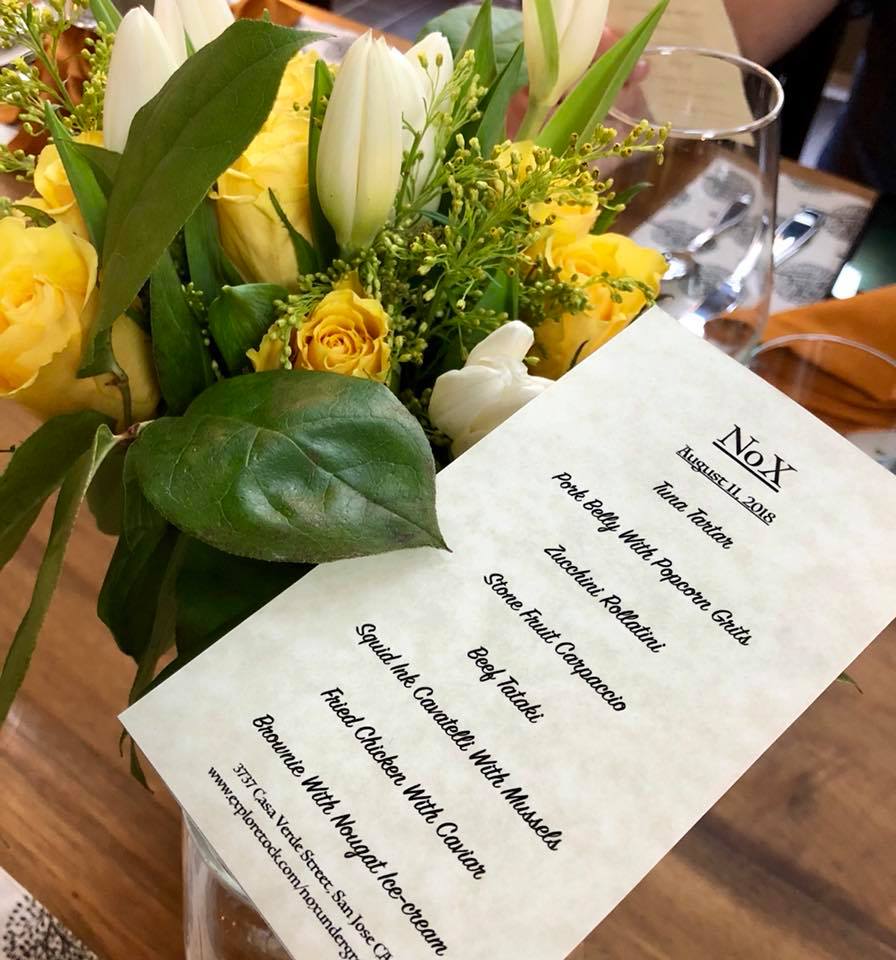 NoX
August 11, 2018
Tuna Tartar
Pork Belly With Popcorn Grits
Zucchini Rollatini
Stone Fruit Carpaccio
Beef Tataki
Squid Ink Cavatelli With Mussels
Fried Chicken With Caviar
Brownie With Nougat Ice-cream
3737 Casa Verde Street, San Jose CA
www.exploretock.com/noxundergr